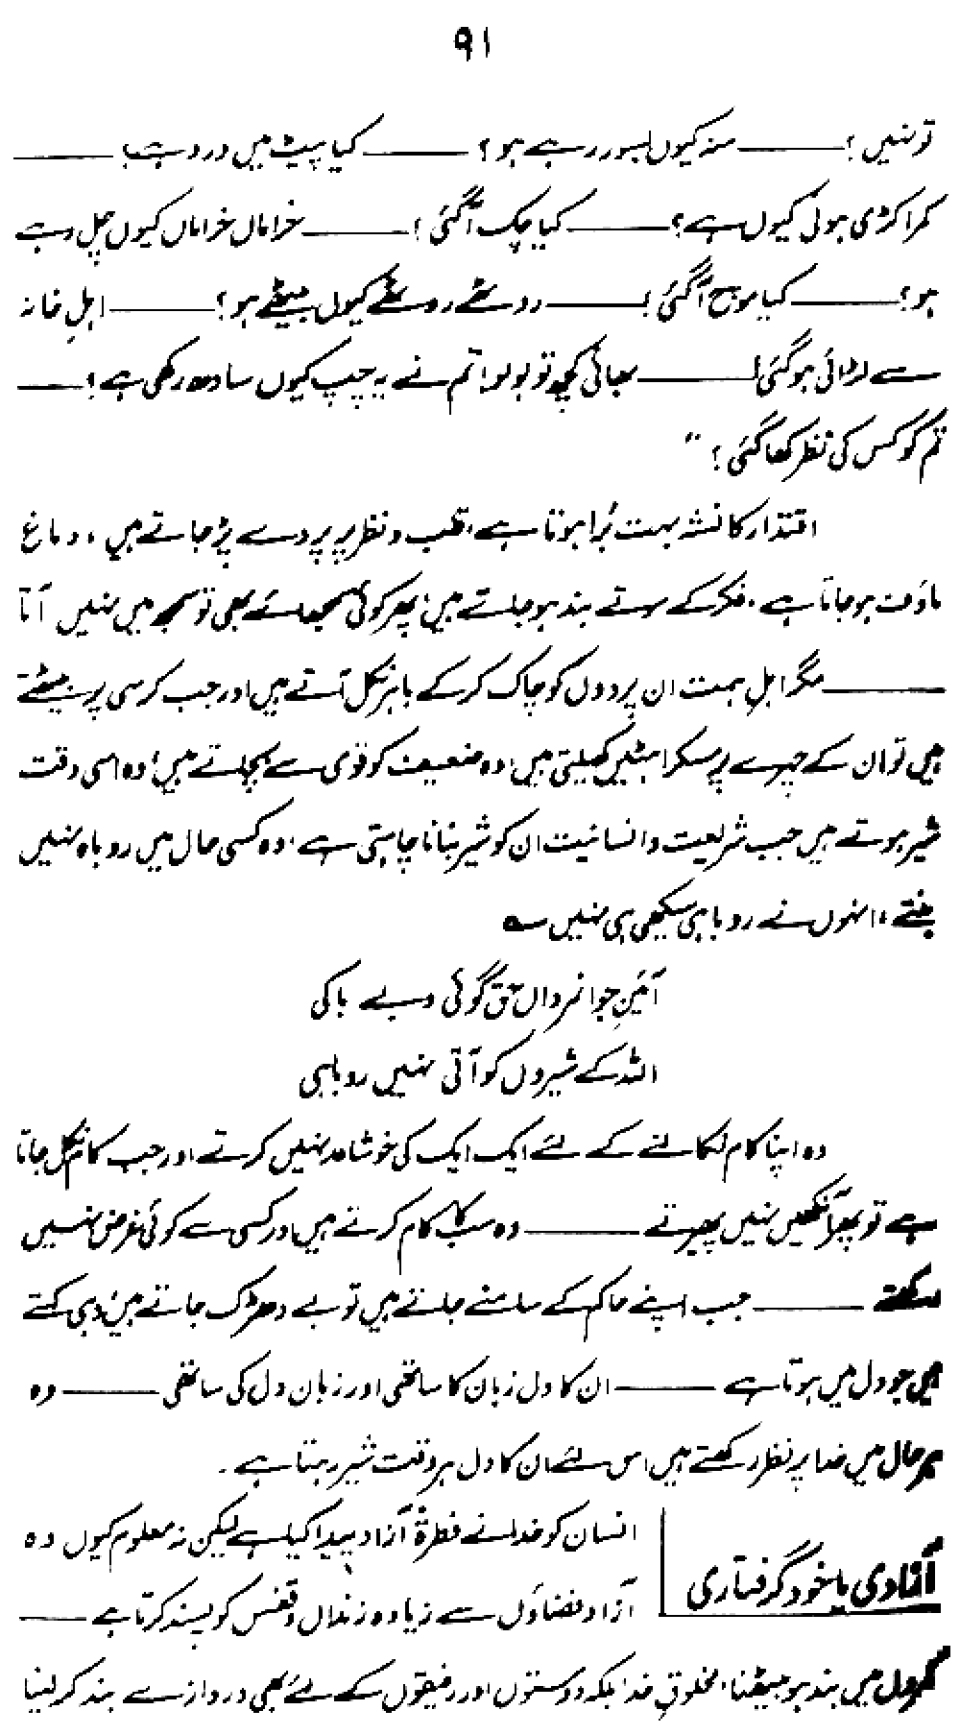 ۹۱
تو نہیں؟ ——— منہ کیوں بسور رہے ہو؟ ——— کیا پیٹ میں درد ہے؟ ———
کمر اکڑی ہوئی کیوں ہے؟ ——— کیا چک آگئی؟ ——— خراماں خراماں کیوں چل رہے
ہو؟ ——— کیا موچ آگئی؟ ——— روٹھے روٹھے کیوں بیٹھے ہو؟ ——— اہلِ خانہ
سے لڑائی ہوگئی! ——— بھائی کچھ تو بولو! تم نے یہ چپ کیوں سادھ رکھی ہے؟ ———
تم کو کس کی نظر کھا گئی؟"
اقتدار کا نشہ بہت بُرا ہوتا ہے، قلب و نظر پر پردے پڑ جاتے ہیں، دماغ
ماؤف ہو جاتا ہے، فکر کے سوتے بند ہو جاتے ہیں؛ پھر کوئی سمجھائے بھی تو سمجھ میں نہیں آتا
——— مگر اہلِ ہمت ان پردوں کو چاک کرکے باہر نکل آتے ہیں اور جب کرسی پر بیٹھتے
ہیں تو ان کے چہرے پر مسکراہٹیں کھیلتی ہیں؛ وہ ضعیف کو قوی سے بچاتے ہیں؛ وہ اسی وقت
شیر ہوتے ہیں جب شریعت و انسانیت ان کو شیر بنانا چاہتی ہے، وہ کسی حال میں روباہ نہیں
بنتے، انہوں نے روباہی سیکھی ہی نہیں ؎
آئینِ جوانمرداں حق گوئی و بے باکی
اللہ کے شیروں کو آتی نہیں روباہی
وہ اپنا کام نکالنے کے لئے ایک ایک کی خوشامد نہیں کرتے اور جب کام نکل جاتا
ہے تو پھر آنکھیں نہیں پھیرتے ——— وہ سب کا کام کرتے ہیں اور کسی سے کوئی غرض نہیں
رکھتے ——— جب اپنے حاکم کے سامنے جاتے ہیں تو بے دھڑک جاتے ہیں؛ وہی کہتے
ہیں جو دل میں ہوتا ہے ——— ان کا دل زبان کا ساتھی اور زبان دل کی ساتھی ——— وہ
ہر حال میں خدا پر نظر رکھتے ہیں اس لئے ان کا دل ہر وقت شیر رہتا ہے۔
آزادی یا خود گرفتاری
انسان کو خدا نے فطرۃً آزاد پیدا کیا ہے لیکن نہ معلوم کیوں وہ
آزاد فضاؤں سے زیادہ زنداں و قفس کو پسند کرتا ہے ———
گھروں میں بند ہو بیٹھنا، مخلوقِ خدا بلکہ دوستوں اور رفیقوں کے لئے بھی دروازے بند کر لینا